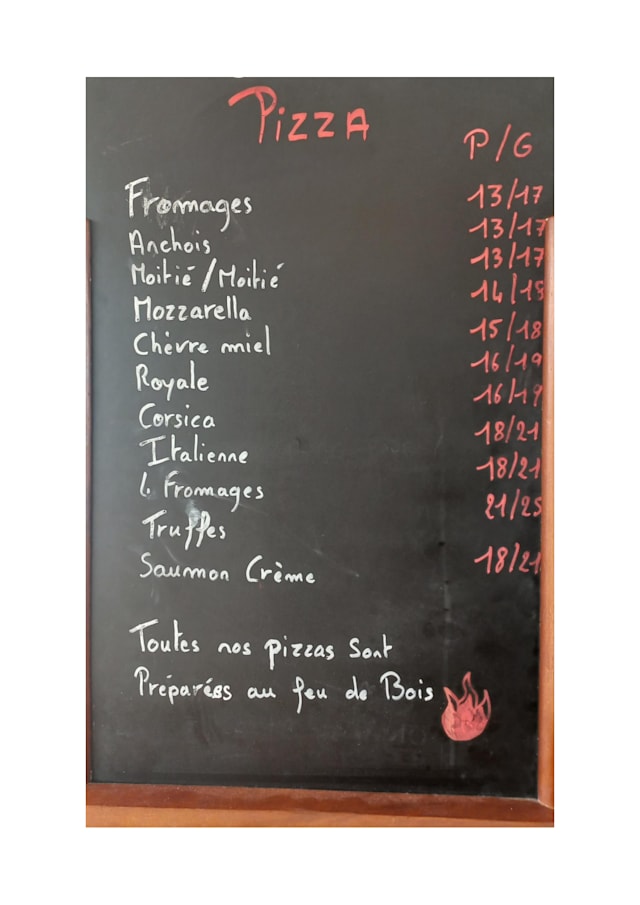 Pizza
P/G
Fromages 13/17
Anchois 13/17
Moitié/Moitié 13/17
Mozzarella 14/18
Chèvre miel 15/18
Royale 16/19
Corsica 16/19
Italienne 18/21
4 Fromages 18/21
Truffes 21/25
Saumon Crème 18/21
Toutes nos pizzas sont
Préparées au feu de Bois